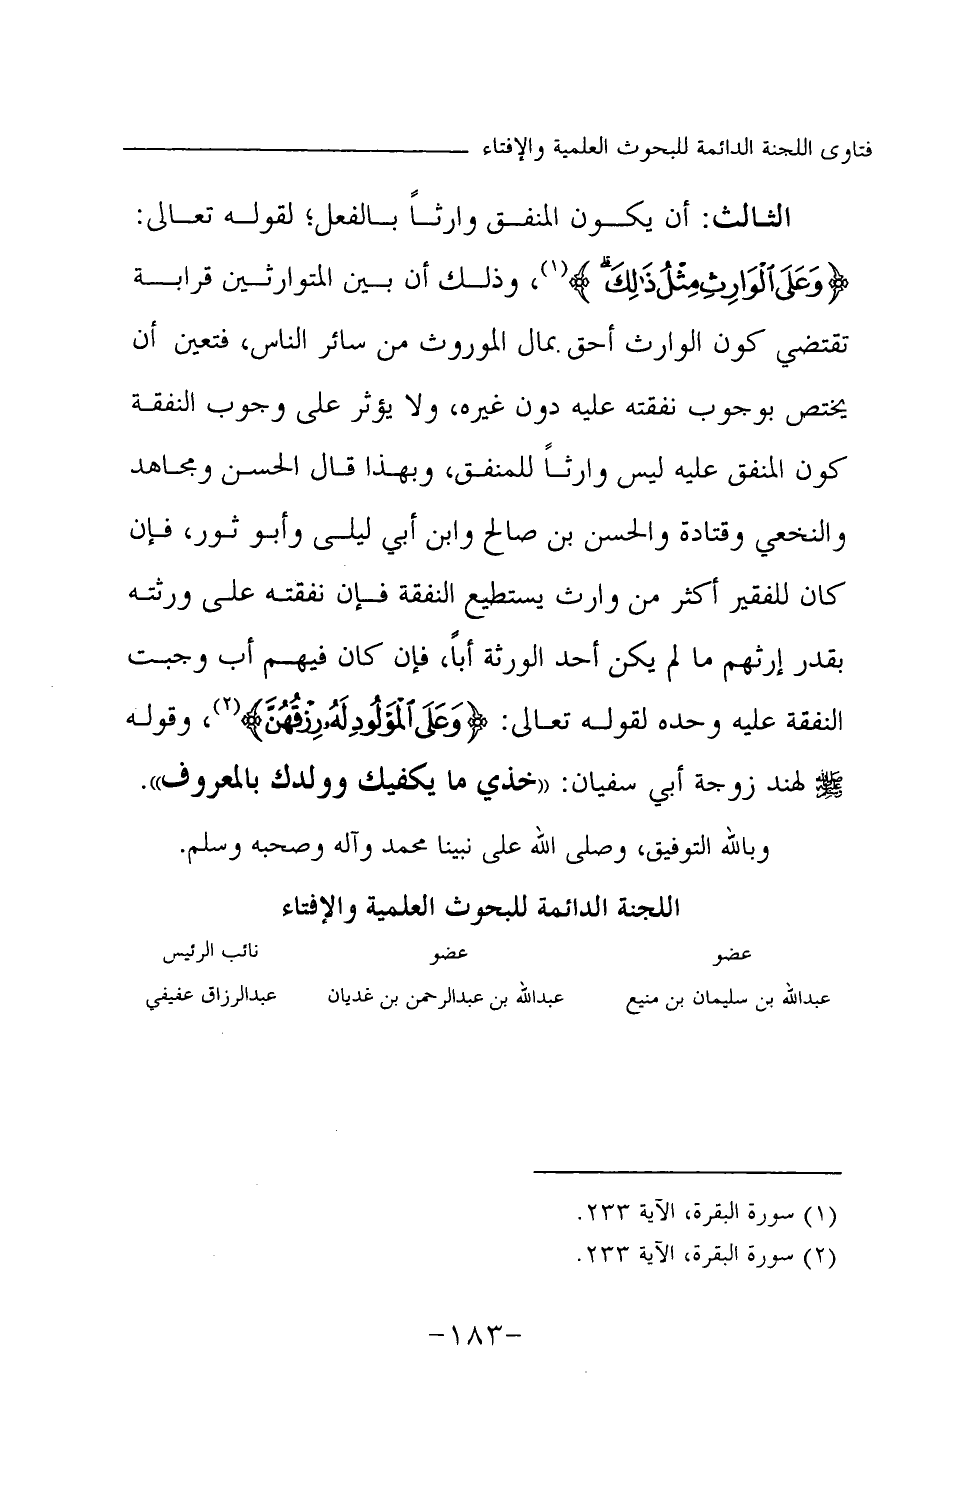 فتاوى اللجنة الدائمة للبحوث العلمية والإفتاء
الثالث: أن يكون المنفق وارثاً بالفعل؛ لقوله تعالى:
﴿وَعَلَى ٱلْوَارِثِ مِثْلُ ذَٰلِكَۗ﴾(١)، وذلك أن بين المتوارثين قرابة
تقتضي كون الوارث أحق بمال الموروث من سائر الناس، فتعين أن
يختص بوجوب نفقته عليه دون غيره، ولا يؤثر على وجوب النفقة
كون المنفق عليه ليس وارثاً للمنفق، وبهذا قال الحسن ومجاهد
والنخعي وقتادة والحسن بن صالح وابن أبي ليلى وأبو ثور، فإن
كان للفقير أكثر من وارث يستطيع النفقة فإن نفقته على ورثته
بقدر إرثهم ما لم يكن أحد الورثة أباً، فإن كان فيهم أب وجبت
النفقة عليه وحده لقوله تعالى: ﴿وَعَلَى ٱلْمَوْلُودِ لَهُۥ رِزْقُهُنَّ﴾(٢)، وقوله
ﷺ لهند زوجة أبي سفيان: «خذي ما يكفيك وولدك بالمعروف».
وبالله التوفيق، وصلى الله على نبينا محمد وآله وصحبه وسلم.
اللجنة الدائمة للبحوث العلمية والإفتاء
عضو عضو نائب الرئيس
عبدالله بن سليمان بن منيع عبدالله بن عبدالرحمن بن غديان عبدالرزاق عفيفي
(١) سورة البقرة، الآية ٢٣٣.
(٢) سورة البقرة، الآية ٢٣٣.
-١٨٣-